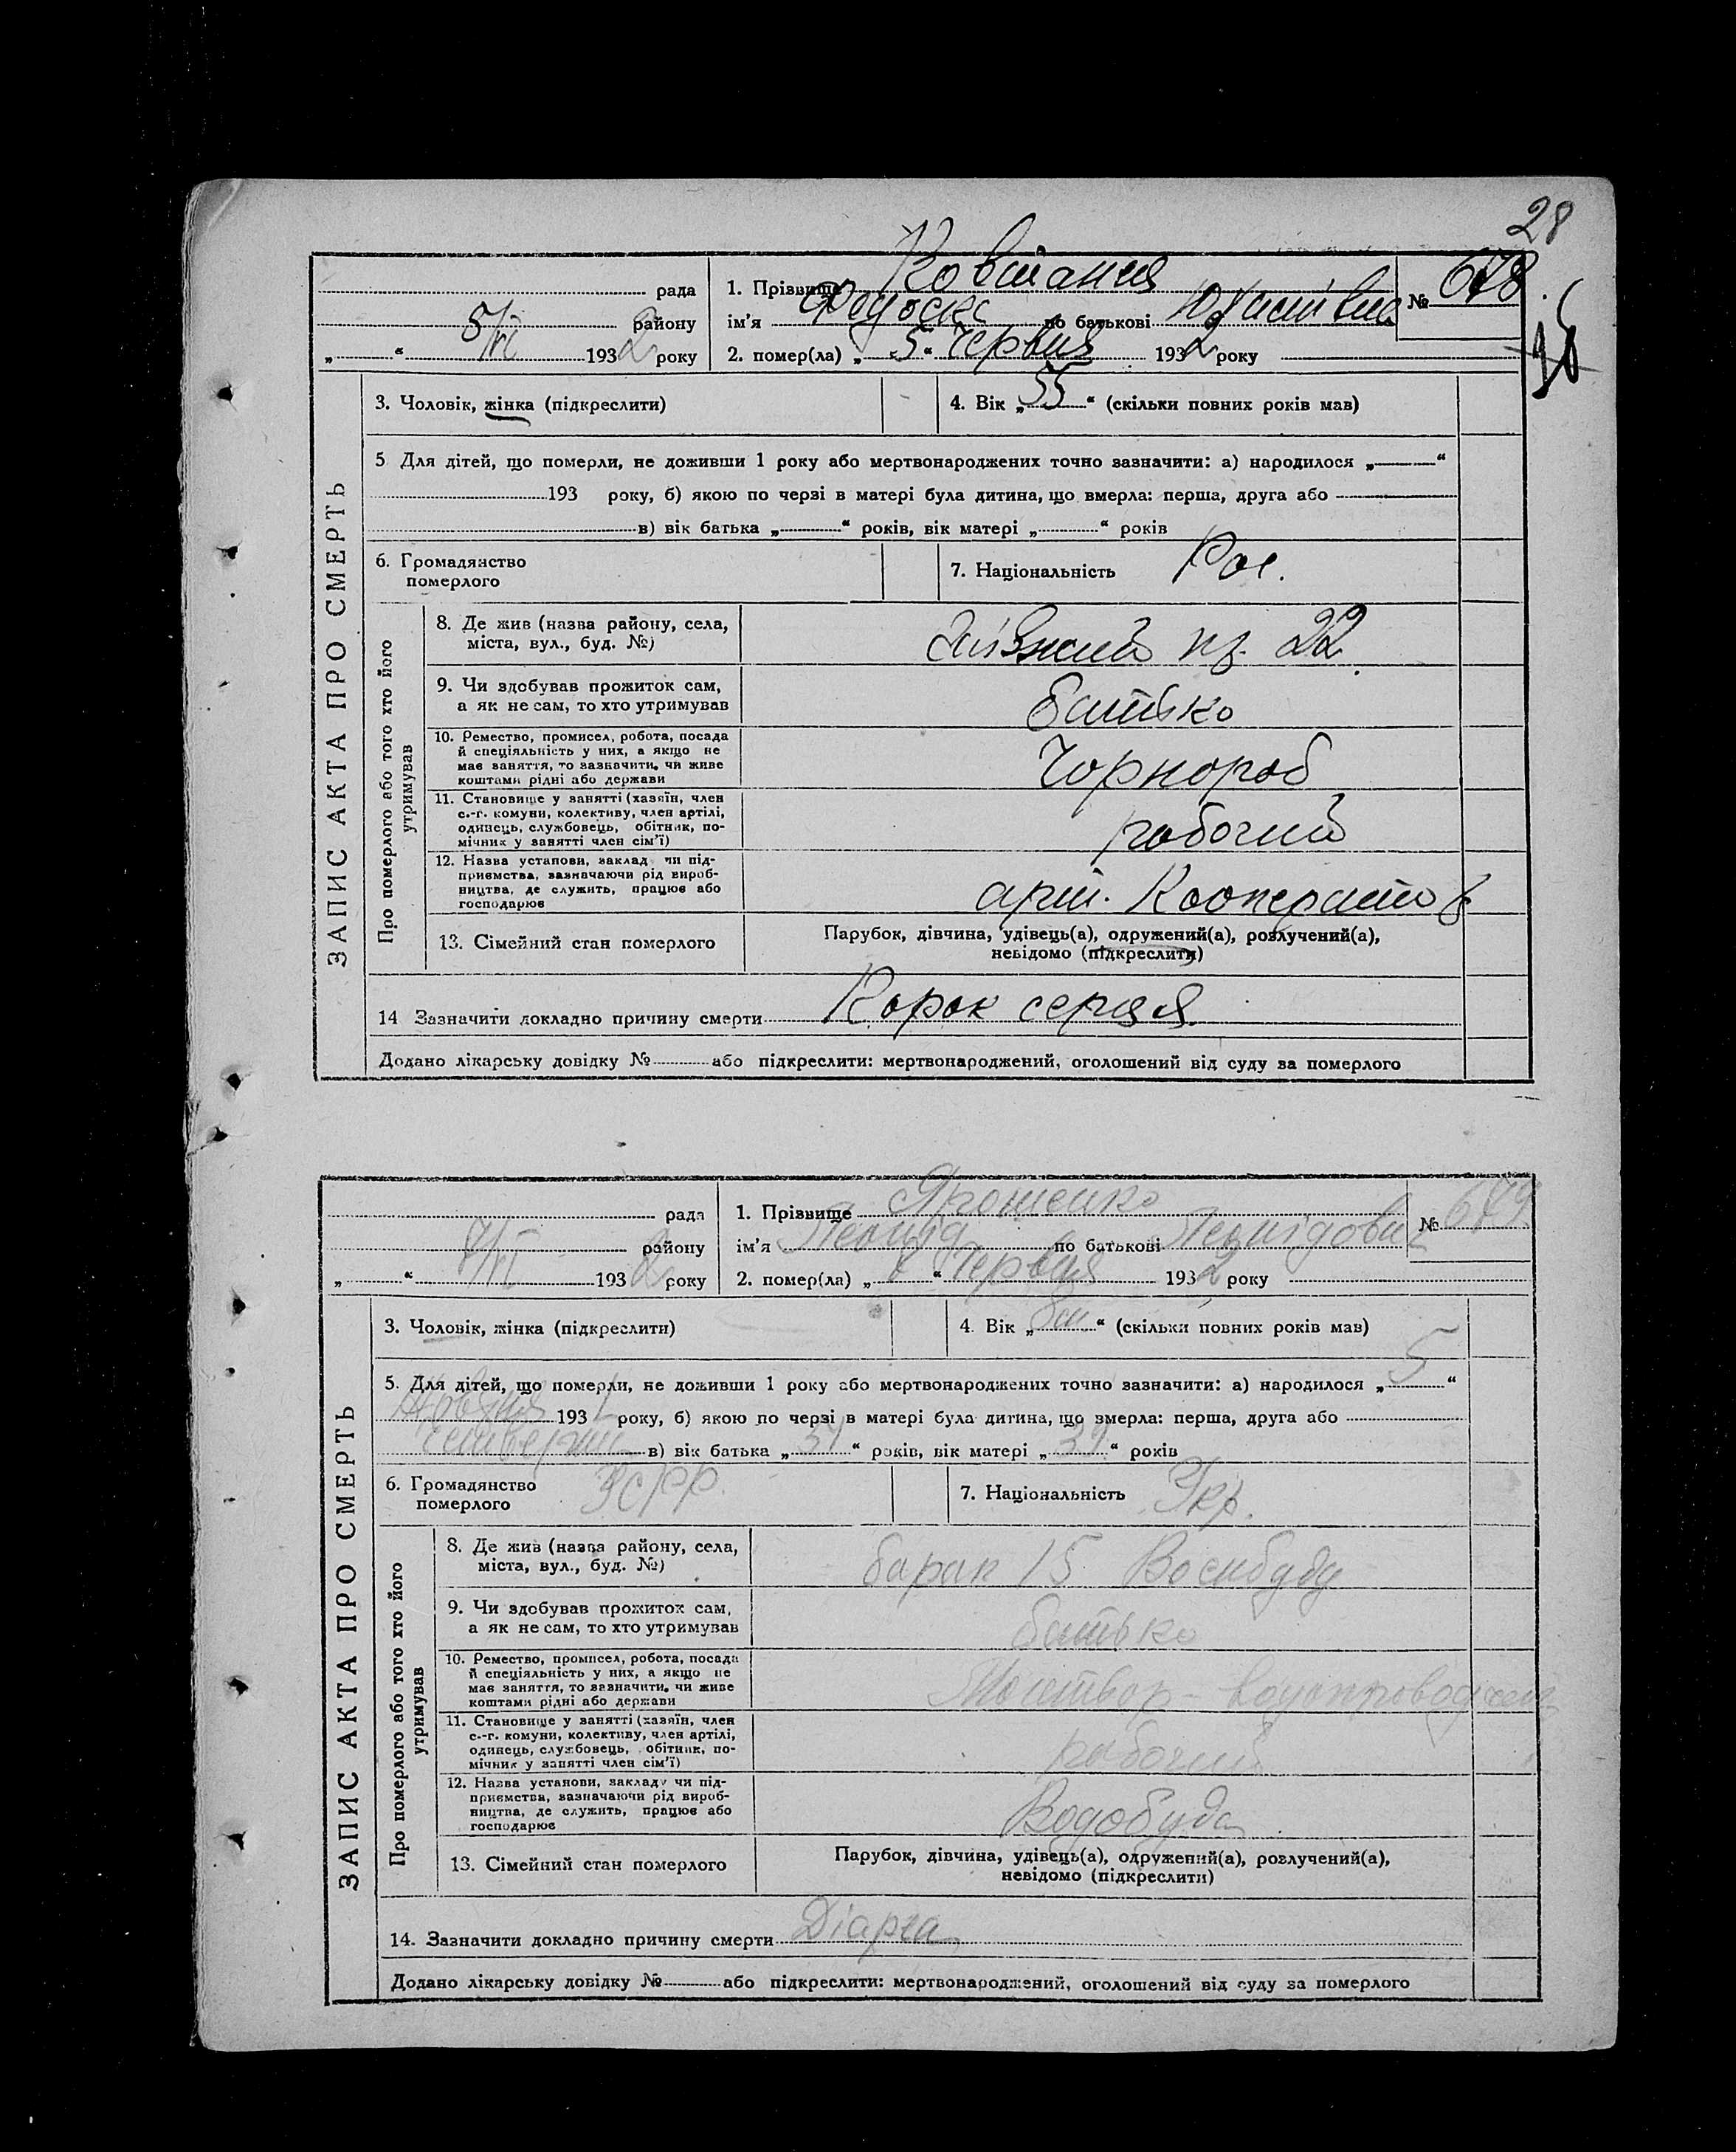 28
рада
1. Прізвище Ковтання
№ 678
району
ім’я Федоска по батькові Юхтівна
5/VI 1932 року
2. помер(ла) „ 5 “ Червня 1932 року
ЗАПИС АКТА ПРО СМЕРТЬ
3. Чоловік, жінка (підкреслити)
4. Вік „ 55 “ (скільки повних років мав)
5 Для дітей, що померли, не доживши 1 року або мертвонароджених точно зазначити: а) народилося „ “
193 року, б) якою по черзі в матері була дитина, що вмерла: перша, друга або
в) вік батька „ “ років, вік матері „ “ років
6. Громадянство
померлого
7. Національність Рос.
Про померлого або того хто його
утримував
8. Де жив (назва району, села,
міста, вул., буд. №)
22
9. Чи здобував прожиток сам,
а як не сам, то хто утримував
батько
10. Ремество, промисел, робота, посада
й спеціяльність у них, а якщо не
має заняття, то зазначити, чи живе
коштами рідні або держави
Чорнороб
11. Становище у занятті (хазяїн, член
с.-г. комуни, колективу, член артілі,
одинець, службовець, обітник, по-
мічник у занятті член сім’ї)
рабочий
12. Назва установи, заклад чи під-
приємства, зазначаючи рід вироб-
ництва, де служить, працює або
господарює
арт. Кооператив
13. Сімейний стан померлого
Парубок, дівчина, удівець(а), одружений(а), розлучений(а),
невідомо (підкреслити)
14 Зазначити докладно причину смерти Порок серця
Додано лікарську довідку № або підкреслити: мертвонароджений, оголошений від суду за померлого
рада
1. Прізвище Ярошенко
№ 679
району
ім’я Леонід по батькові Леонідович
7/VI 1932 року
2. помер(ла) „ 7 “ Червня 1932 року
ЗАПИС АКТА ПРО СМЕРТЬ
3. Чоловік, жінка (підкреслити)
4. Вік „ 8м “ (скільки повних років мав)
5. Для дітей, що померли, не доживши 1 року або мертвонароджених точно зазначити: а) народилося „ 5 “
Жовтня 1931 року, б) якою по черзі в матері була дитина, що вмерла: перша, друга або
четверта в) вік батька „ “ років, вік матері „ “ років
6. Громадянство
померлого
УСРР.
7. Національність Укр.
Про померлого або того хто його
утримував
8. Де жив (назва району, села,
міста, вул., буд. №)
барак 15 Воєнбуду
9. Чи здобував прожиток сам,
а як не сам, то хто утримував
батько
10. Ремество, промисел, робота, посада
й спеціяльність у них, а якщо не
має заняття, то зазначити, чи живе
коштами рідні або держави
11. Становище у занятті (хазяїн, член
с.-г. комуни, колективу, член артілі,
одинець, службовець, обітник, по-
мічник у занятті член сім’ї)
рабочий
12. Назва установи, закладу чи під-
приємства, зазначаючи рід вироб-
ництва, де служить, працює або
господарює
Водобуда
13. Сімейний стан померлого
Парубок, дівчина, удівець(а), одружений(а), розлучений(а),
невідомо (підкреслити)
14. Зазначити докладно причину смерти Діарея
Додано лікарську довідку № або підкреслити: мертвонароджений, оголошений від суду за померлого